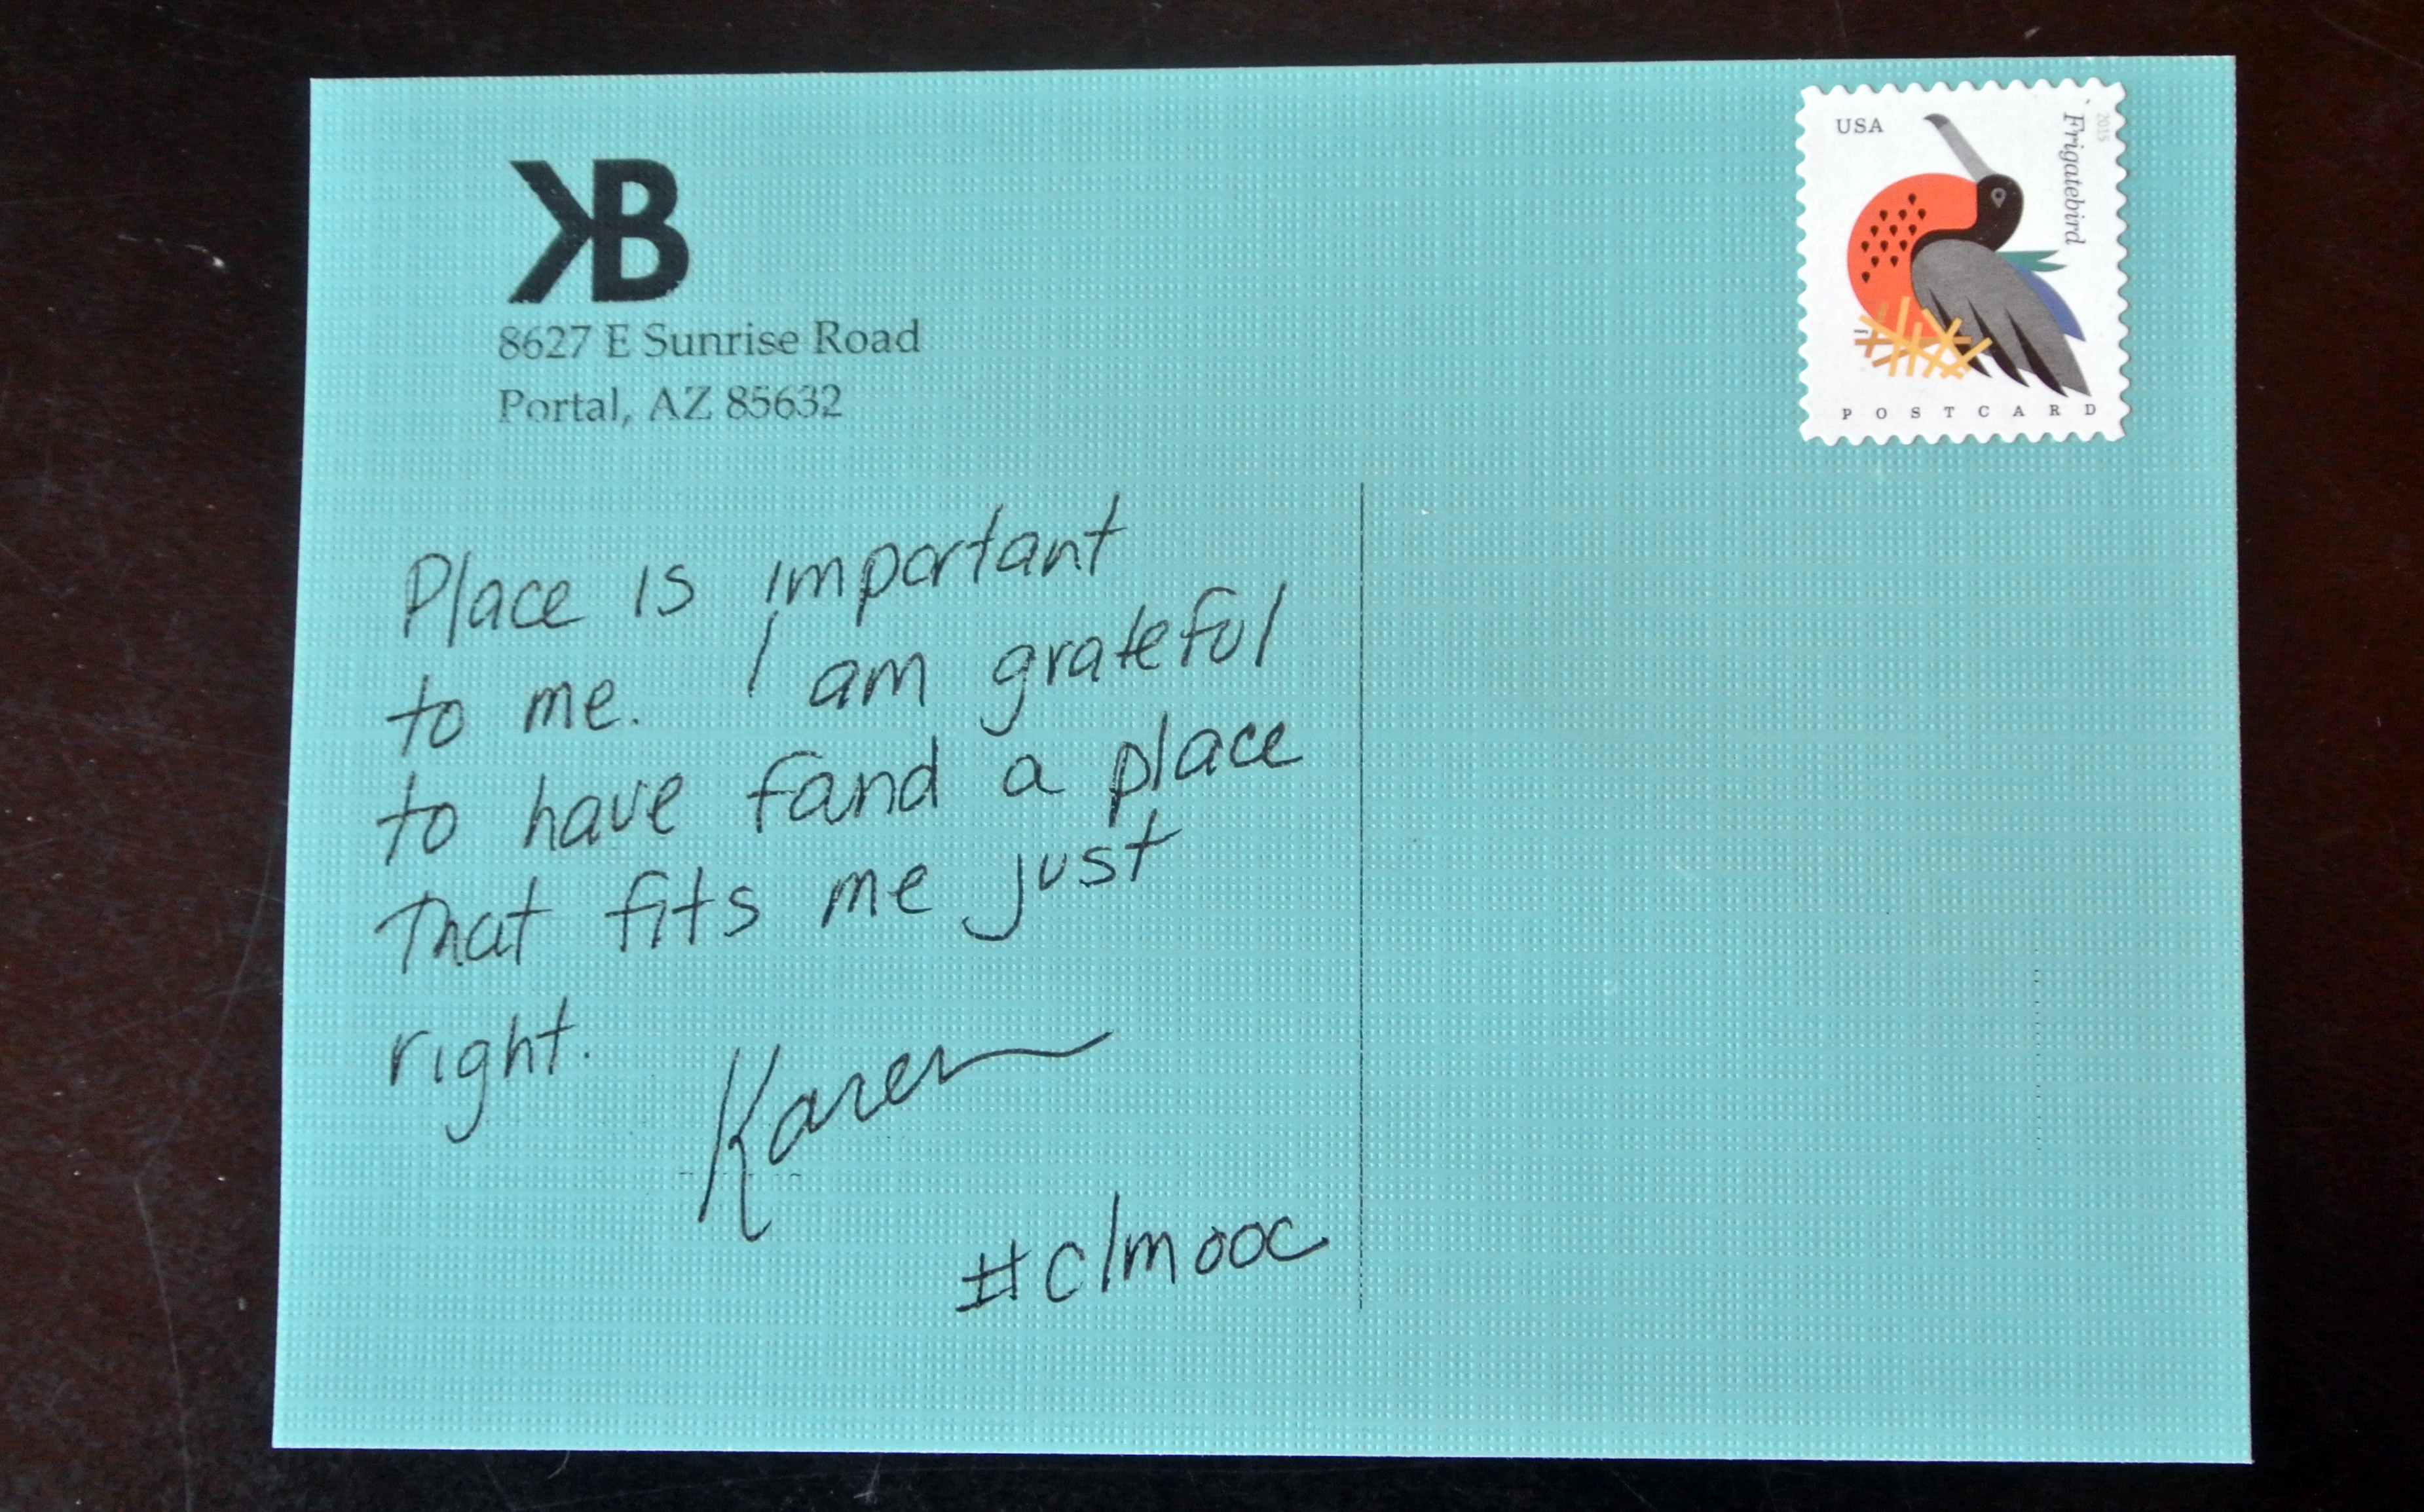 KB
8627 E Sunrise Road
Portal, AZ 85632
USA
Frigatebird
2015
POSTCARD
Place is important
to me. I am grateful
to have found a place
that fits me just
right.
Karen
#clmooc